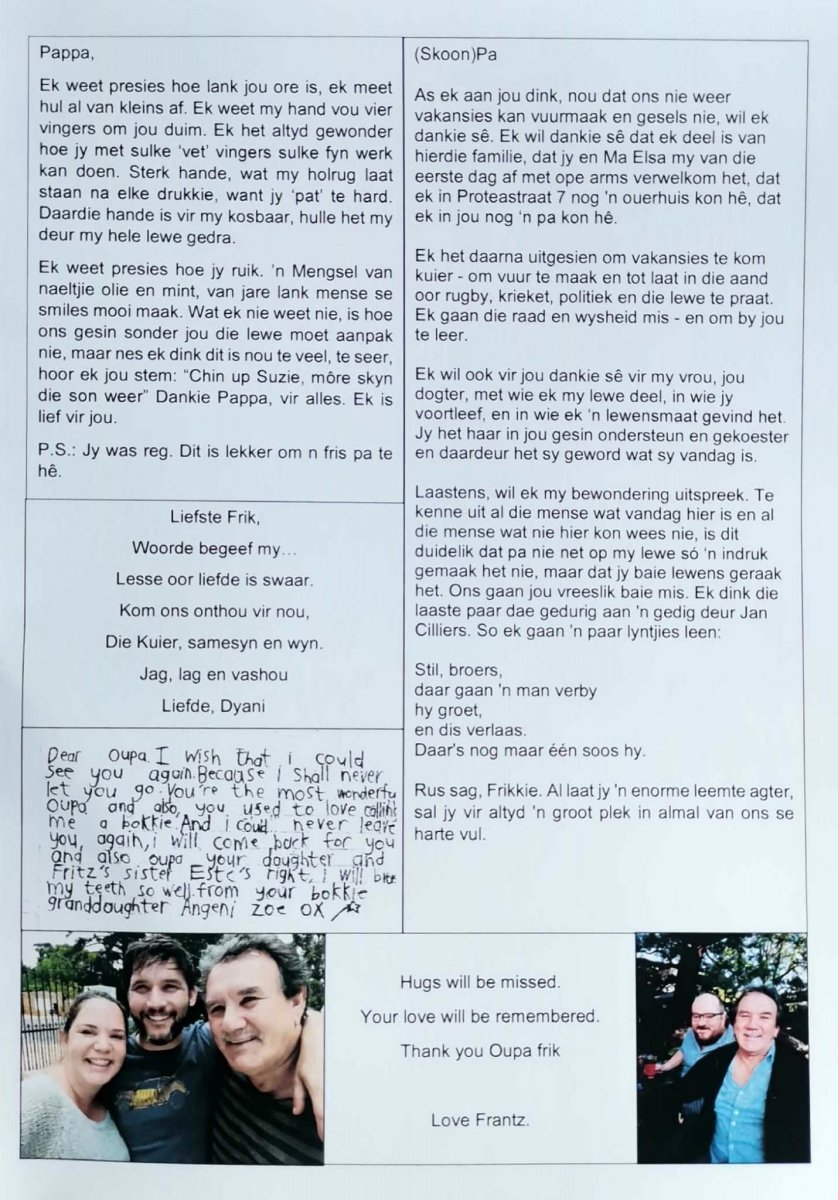 Pappa,
Ek weet presies hoe lank jou ore is, ek meet
hul al van kleins af. Ek weet my hand vou vier
vingers om jou duim. Ek het altyd gewonder
hoe jy met sulke 'vet' vingers sulke fyn werk
kan doen. Sterk hande, wat my holrug laat
staan na elke drukkie, want jy 'pat' te hard.
Daardie hande is vir my kosbaar, hulle het my
deur my hele lewe gedra.
Ek weet presies hoe jy ruik. 'n Mengsel van
naeltjie olie en mint, van jare lank mense se
smiles mooi maak. Wat ek nie weet nie, is hoe
ons gesin sonder jou die lewe moet aanpak
nie, maar nes ek dink dit is nou te veel, te seer,
hoor ek jou stem: "Chin up Suzie, môre skyn
die son weer" Dankie Pappa, vir alles. Ek is
lief vir jou.
P.S.: Jy was reg. Dit is lekker om n fris pa te
hê.
Liefste Frik,
Woorde begeef my…
Lesse oor liefde is swaar.
Kom ons onthou vir nou,
Die Kuier, samesyn en wyn.
Jag, lag en vashou
Liefde, Dyani
Dear Oupa I wish that i could
see you again. Because i shall never
let you go. You're the most wonderfu
Oupa and also, you used to love calling
me a bokkie. And i could never leave
you, again, i will come back for you
and also oupa your daughter and
Fritz's sister Este's right, i will
my teeth so well. from your bokkie
granddaughter Angeni Zoe OX
(Skoon)Pa
As ek aan jou dink, nou dat ons nie weer
vakansies kan vuurmaak en gesels nie, wil ek
dankie sê. Ek wil dankie sê dat ek deel is van
hierdie familie, dat jy en Ma Elsa my van die
eerste dag af met ope arms verwelkom het, dat
ek in Proteastraat 7 nog 'n ouerhuis kon hê, dat
ek in jou nog 'n pa kon hê.
Ek het daarna uitgesien om vakansies te kom
kuier - om vuur te maak en tot laat in die aand
oor rugby, krieket, politiek en die lewe te praat.
Ek gaan die raad en wysheid mis - en om by jou
te leer.
Ek wil ook vir jou dankie sê vir my vrou, jou
dogter, met wie ek my lewe deel, in wie jy
voortleef, en in wie ek 'n lewensmaat gevind het.
Jy het haar in jou gesin ondersteun en gekoester
en daardeur het sy geword wat sy vandag is.
Laastens, wil ek my bewondering uitspreek. Te
kenne uit al die mense wat vandag hier is en al
die mense wat nie hier kon wees nie, is dit
duidelik dat pa nie net op my lewe só 'n indruk
gemaak het nie, maar dat jy baie lewens geraak
het. Ons gaan jou vreeslik baie mis. Ek dink die
laaste paar dae gedurig aan 'n gedig deur Jan
Cilliers. So ek gaan 'n paar lyntjies leen:
Stil, broers,
daar gaan 'n man verby
hy groet,
en dis verlaas.
Daar's nog maar één soos hy.
Rus sag, Frikkie. Al laat jy 'n enorme leemte agter,
sal jy vir altyd 'n groot plek in almal van ons se
harte vul.
Hugs will be missed.
Your love will be remembered.
Thank you Oupa frik
Love Frantz.